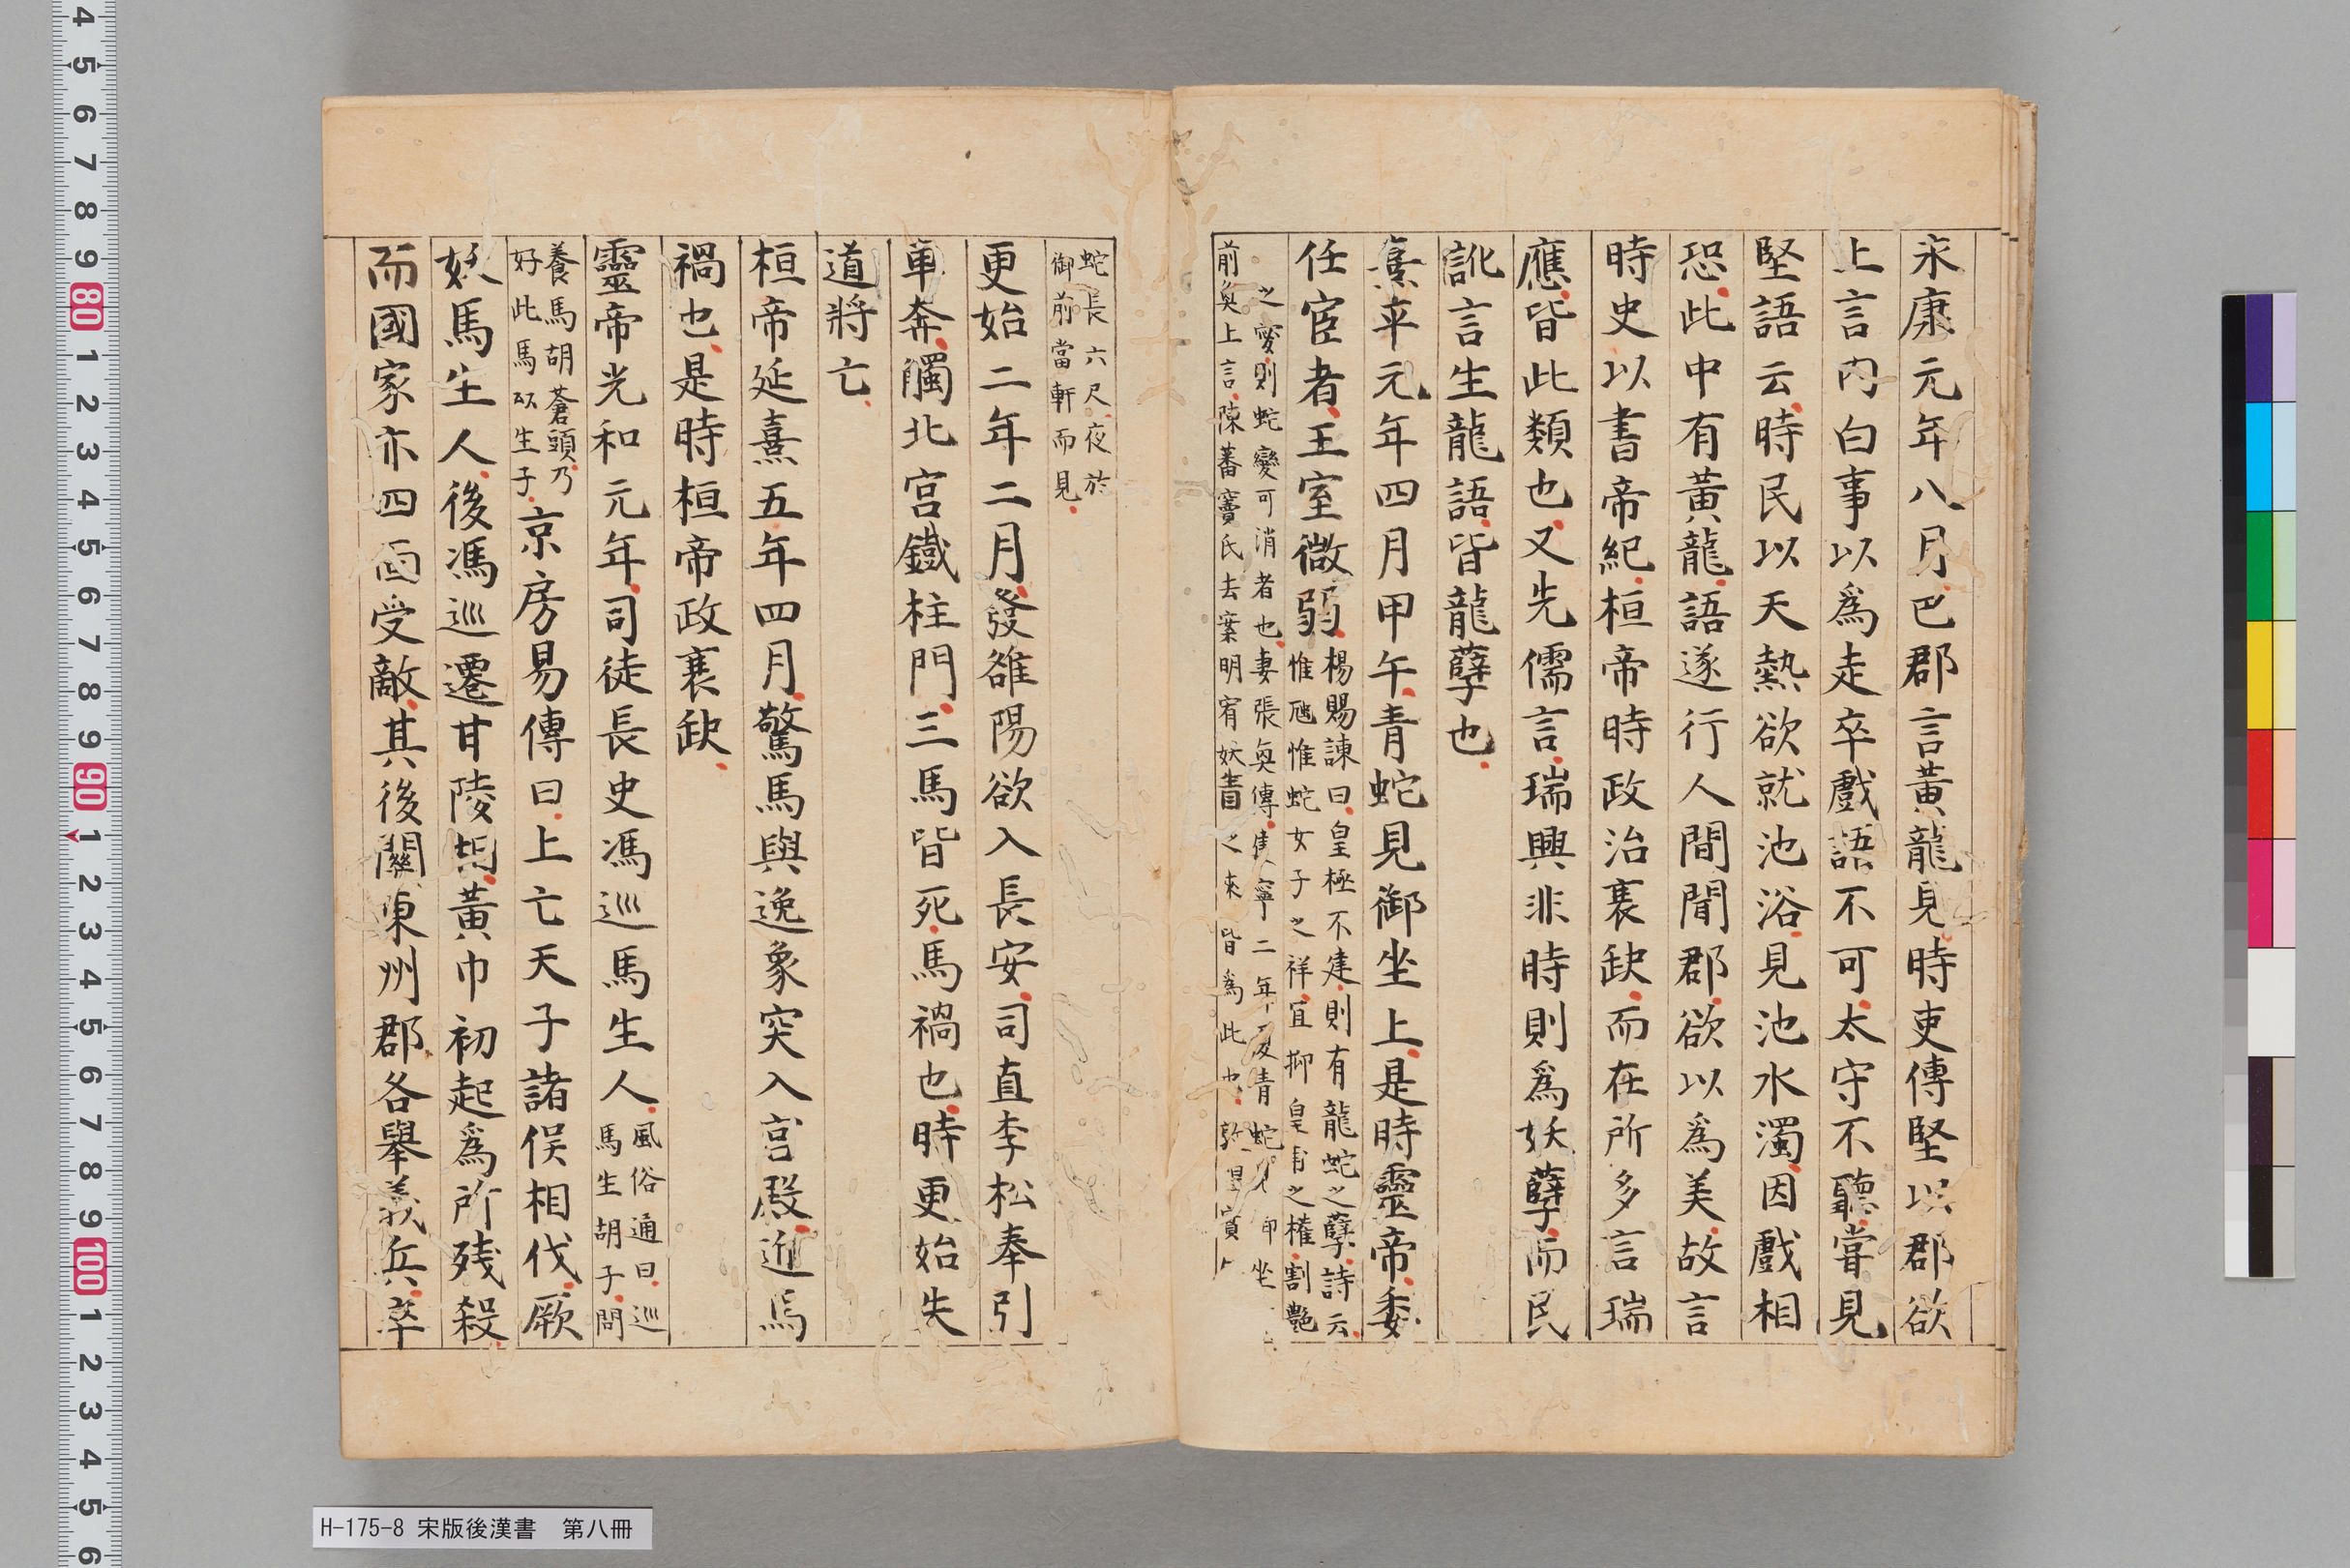 永康元年八月巴郡言黃龍見時吏傅堅以郡欲
上言內白事以爲走卒戲語不可太守不聽嘗見
堅語云時民以天熱欲就池浴見池水濁因戲相
恐此中有黃龍語遂行人間聞郡欲以爲美故言
時史以書帝紀桓帝時政治衰缺而在所多言瑞
應皆此類也又先儒言瑞興非時則爲妖孽而民
訛言生龍語皆龍孽也
熹平元年四月甲午青蛇見御坐上是時靈帝委
任宦者王室微弱
楊賜諫曰皇極不建則有龍蛇之孽詩云
惟虺惟蛇女子之祥宜抑皇甫之權割艷
之愛則蛇變可消者也妻張奐傳建寧二年夏青蛇見御坐
前奐上言陳蕃竇氏去案明宥妖眚之來皆爲此也敦煌實
蛇長六尺夜於
御前當軒而見
更始二年二月發雒陽欲入長安司直李松奉引
車奔觸北宮鐵柱門三馬皆死馬禍也時更始失
道將亡
桓帝延熹五年四月驚馬與逸象突入宮殿近馬
禍也是時桓帝政衰缺
靈帝光和元年司徒長史馮巡馬生人
風俗通曰巡
馬生胡子問
養馬胡蒼頭乃
好此馬以生子
京房易傳曰上亡天子諸侯相伐厥
妖馬生人後馮巡遷甘陵相黃巾初起爲所殘殺
而國家亦四面受敵其後關東州郡各舉義兵卒
H-175-8 宋版後漢書 第八冊
4 5 6 7 8 9 80 1 2 3 4 5 6 7 8 9 90 1 2 3 4 5 6 7 8 9 100 1 2 3 4 5 6